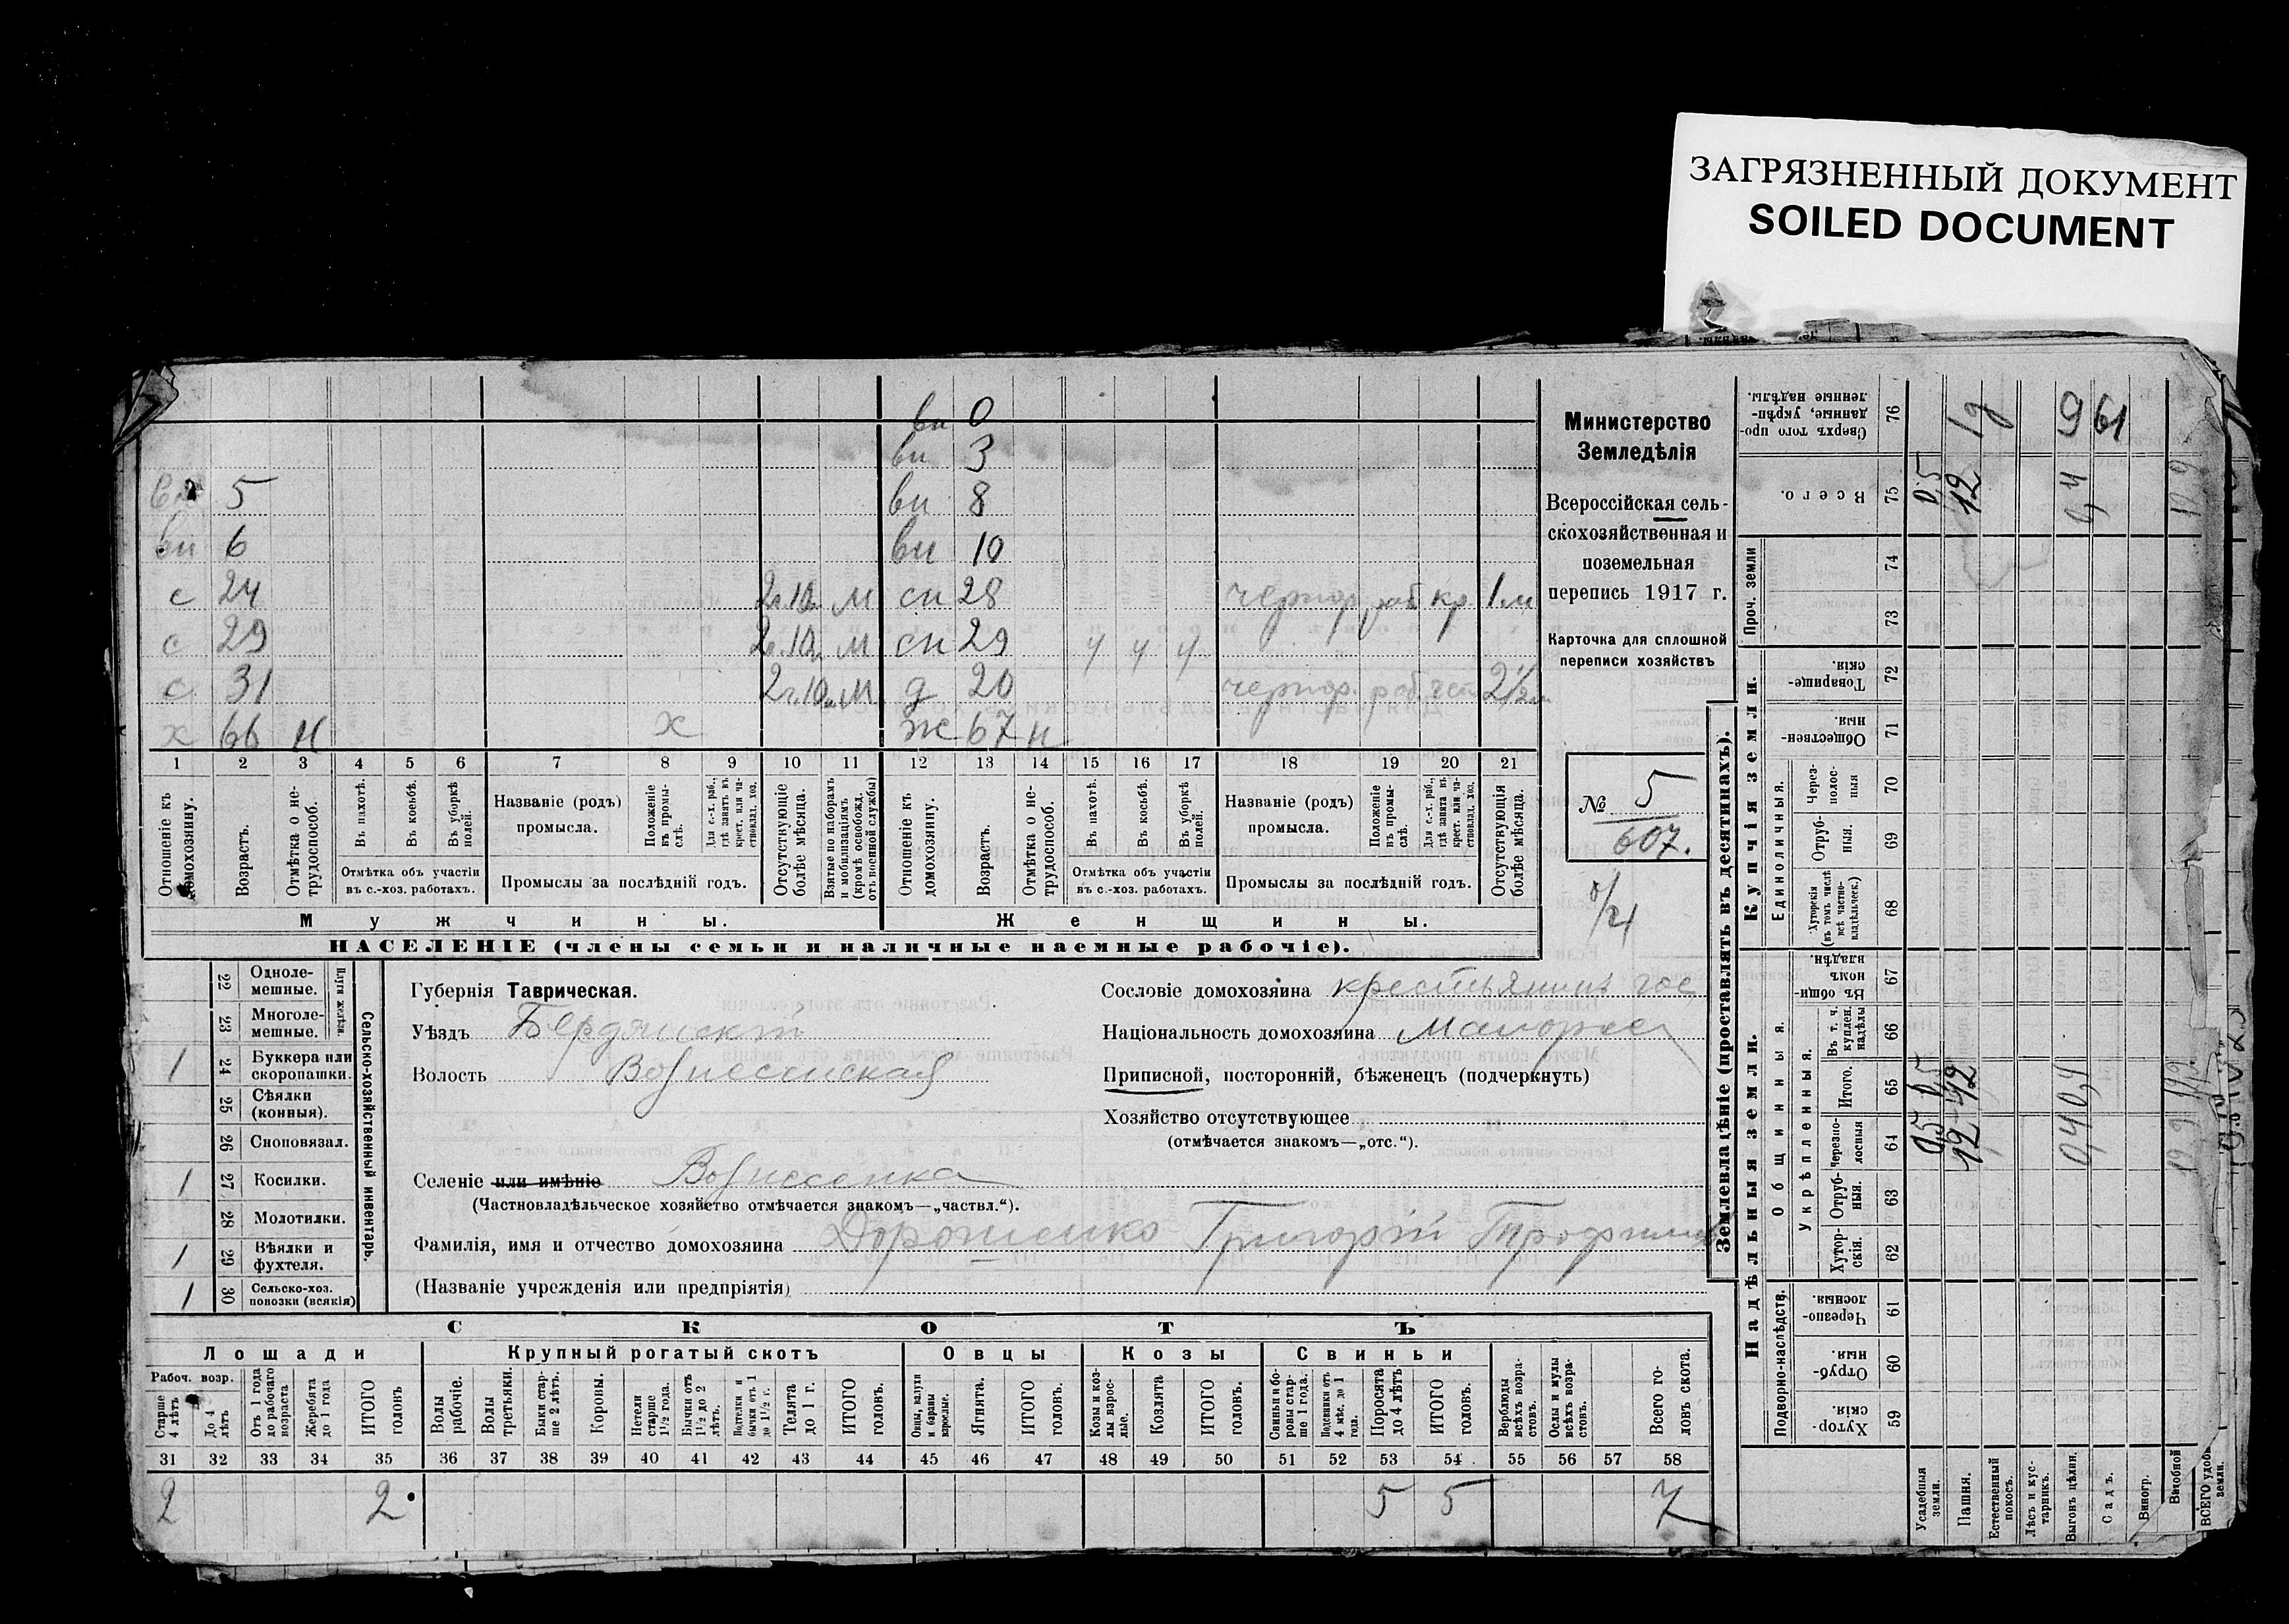 ЗАГРЯЗНЕННЫЙ ДОКУМЕНТ
SOILED DOCUMENT
вн 0
вн 3
5 вн 8
вн 6 вн 10
с 24 2г.10м М сн 28 чернор. раб. кр 1м
с 29 2г.10м М сн 29 ч ч ч
с 31 2г.10м М д 20 чернор. раб. 2½м
х 66 н х ж 67 н
1 2 3 4 5 6 7 8 9 10 11 12 13 14 15 16 17 18 19 20 21
Отношеніе къ домохозяину.
Возрастъ.
Отмѣтка о не-трудоспособ.
Въ пахотѣ.
Въ косьбѣ.
Въ уборкѣ полей.
Отмѣтка объ участіи въ с.-хоз. работахъ.
Названіе (родъ) промысла.
Положеніе въ промы-слѣ.
Для с.-х. раб., гдѣ занятъ въ крест. или ча-стновлад. хоз.
Промыслы за послѣдній годъ.
Отсутствующіе болѣе мѣсяца.
Взятые по наборамъ и мобилизаціямъ (кромѣ освобожд. отъ военной службы)
Отношеніе къ домохозяину.
Возрастъ.
Отмѣтка о не-трудоспособ.
Въ пахотѣ.
Въ косьбѣ.
Въ уборкѣ полей.
Отмѣтка объ участіи въ с.-хоз. работахъ.
Названіе (родъ) промысла.
Положеніе въ промы-слѣ.
Для с.-х. раб., гдѣ занята въ крест. или ча-стновлад. хоз.
Промыслы за послѣдній годъ.
Отсутствующія болѣе мѣсяца.
Мужчины. Женщины.
НАСЕЛЕНІЕ (члены семьи и наличные наемные рабочіе).
Министерство
Земледѣлія
Всероссійская сель-
скохозяйственная и
поземельная
перепись 1917 г.
Карточка для сплошной
переписи хозяйствъ
№ 5
607.
22 Одноле-мешные.
23 Многоле-мешные.
Плуги желѣзн.
1 24 Буккера или скоропашки.
25 Сѣялки (конныя).
26 Сноповязал.
1 27 Косилки.
28 Молотилки.
1 29 Вѣялки и фухтеля.
1 30 Сельско-хоз. повозки (всякія)
Сельско-хозяйственный инвентарь.
Губернія Таврическая.
Уѣздъ Бердянскій
Волость Вознесенская
Селеніе или имѣніе Вознесенка
(Частновладѣльческое хозяйство отмѣчается знакомъ—„частвл.“).
Сословіе домохозяина крестьянинъ гос.
Національность домохозяина Малоросс
Приписной, посторонній, бѣженецъ (подчеркнуть)
Хозяйство отсутствующее
(отмѣчается знакомъ—„отс.“).
Фамилія, имя и отчество домохозяина Дорошенко Григорій Трофимов
(Названіе учрежденія или предпріятія)
СКОТЪ
Лошади Крупный рогатый скотъ Овцы Козы Свиньи
Рабоч. возр.
Старше 4 лѣтъ
До 4 лѣтъ
Отъ 1 года до рабочаго возраста
Жеребята до 1 года
ИТОГО головъ
Волы рабочіе.
Волы третьяки.
Быки стар-ше 2 лѣтъ.
Коровы.
Нетели старше 1½ года.
Бычки отъ 1½ до 2 лѣтъ.
Подтелки и бычки отъ 1 до 1½ г.
Телята до 1 г.
ИТОГО головъ.
Овцы, валухи и бараны взрослые.
Ягнята.
ИТОГО головъ.
Козы и коз-лы взрос-лые.
Козлята
ИТОГО головъ.
Свиньи и бо-ровы стар-ше 1 года.
Подсвинки отъ 4 мѣс. до 1 года.
Поросята до 4 лѣтъ
ИТОГО головъ.
Верблюды всѣхъ возра-стовъ.
Ослы и мулы всѣхъ возра-стовъ.
Всего го-ловъ скота.
31 32 33 34 35 36 37 38 39 40 41 42 43 44 45 46 47 48 49 50 51 52 53 54 55 56 57 58
2 2 5 5 7
Землевладѣніе (проставлять въ десятинахъ).
Надѣльныя земли. Купчія земли. Проч. земли
Подворно-наслѣдств. Общинныя. Укрѣпленныя. Единоличныя.
59 Хутор-скія.
60 Отруб-ныя.
61 Черезпо-лосныя.
62 Хутор-скія.
63 Отруб-ныя.
64 Черезпо-лосныя
65 Итого.
66 Въ т. ч. куплен. надѣлы
67 Въ общи-номъ владѣн.
68 Хуторскія (въ томъ числѣ всѣ частно-владѣльческ.)
69 Отруб-ныя.
70 Через-полос-ныя
71 Обществен-ныя.
72 Товарище-скія.
73
74
75 Всего.
76 Сверхъ того про-данные, укрѣп-ленные надѣлы.
Усадебныя земли. 0,5 0,5 0,5
Пашня. 12 12 12
Естественный покосъ.
Лѣсъ и кус-тарникъ.
Выгонъ цѣлин. 0,4 0,4
Садъ.
Виногр.
Неудобной
ВСЕГО удоб. земли.